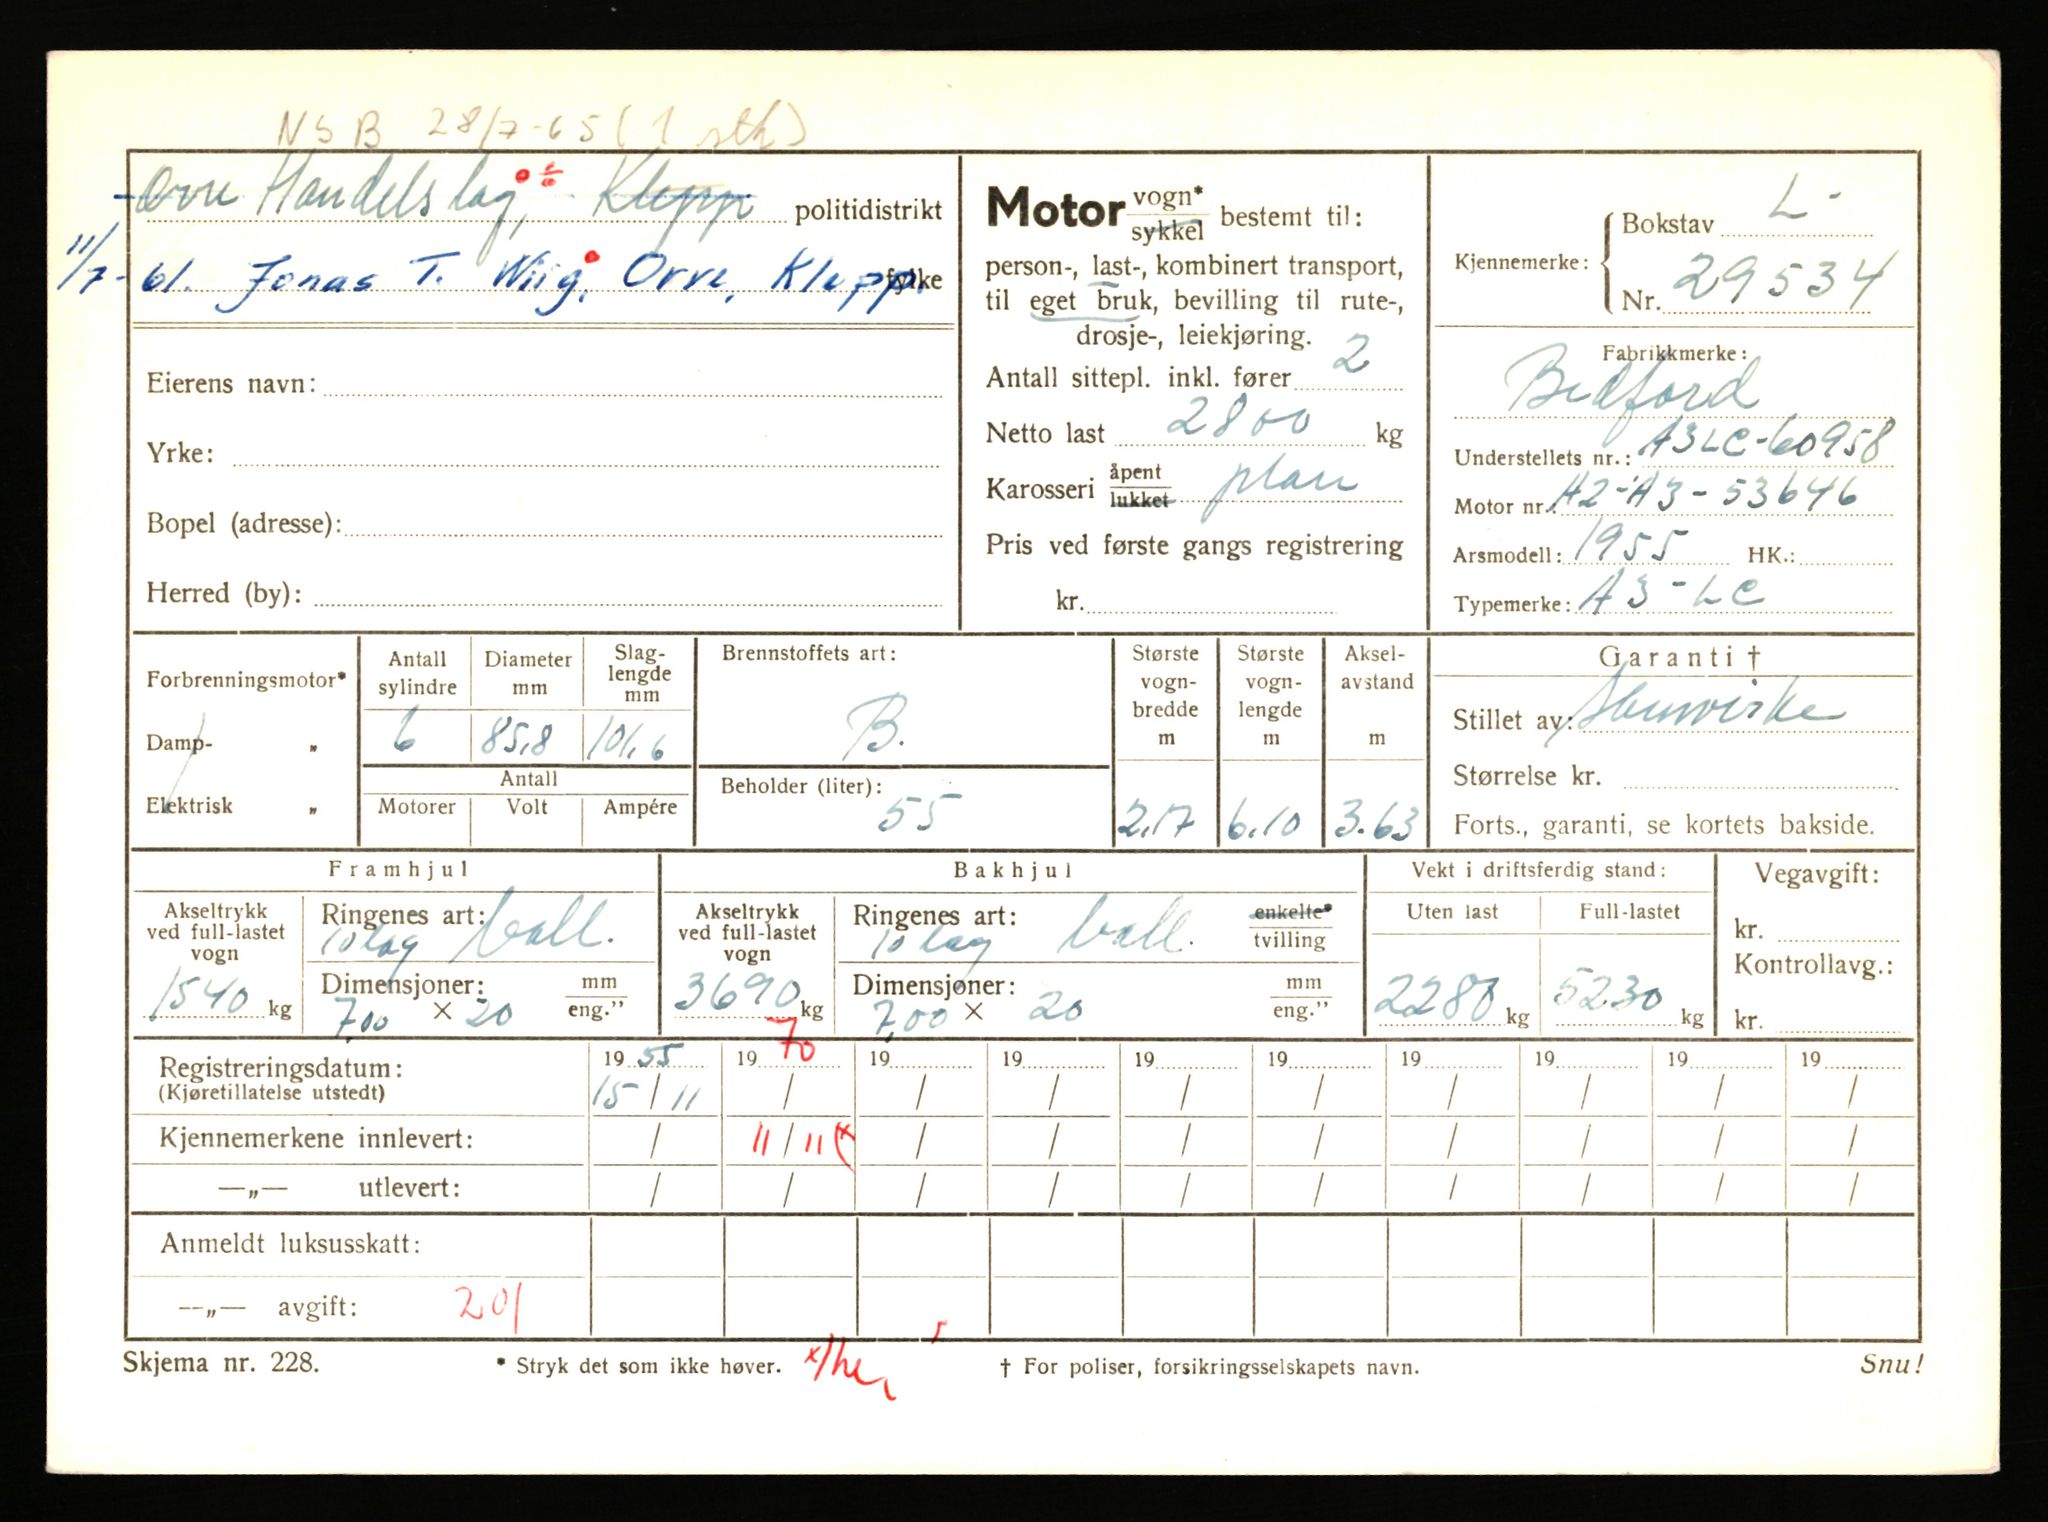 NSB 28/7-65 (1 stk)
Orre Handelslag, Klepp politidistrikt
11/7-61. Jonas T. Wiig, Orre, Klepp. fylke
Eierens navn:
Yrke:
Bopel (adresse):
Herred (by):
Motor vogn* sykkel bestemt til:
person-, last-, kombinert transport,
til eget bruk, bevilling til rute-,
drosje-, leiekjøring.
Antall sittepl. inkl. fører 2
Netto last 2800 kg
Karosseri åpent lukket plan
Pris ved første gangs registrering
kr.
Kjennemerke: Bokstav L-
Nr. 29534
Fabrikkmerke:
Bedford
Understellets nr.: A3LC-60958
Motor nr.: A2-A3-53646
Årsmodell: 1955 HK.:
Typemerke: A3-LC
Forbrenningsmotor*
Damp- „
Elektrisk „
Antall sylindre 6
Diameter mm 85,8
Slaglengde mm 101,6
Antall
Motorer Volt Ampére
Brennstoffets art:
B.
Beholder (liter):
55
Største vognbredde m 2,17
Største vognlengde m 6.10
Akselavstand m 3.63
Garanti †
Stillet av:
Størrelse kr.
Forts., garanti, se kortets bakside.
Framhjul
Akseltrykk ved full-lastet vogn 1540 kg
Ringenes art: 10 lag ball.
Dimensjoner: 7,00 × 20 mm eng."
Bakhjul
Akseltrykk ved full-lastet vogn 3690 kg
Ringenes art: 10 lag ball. enkelte* tvilling
Dimensjoner: 7,00 × 20 mm eng."
Vekt i driftsferdig stand:
Uten last 2280 kg
Full-lastet 5230 kg
Vegavgift:
kr.
Kontrollavg.:
kr.
Registreringsdatum: 19 55 19 70 19 19 19 19 19 19 19 19
(Kjøretillatelse utstedt) 15 / 11 / / / / / / / / /
Kjennemerkene innlevert: / 11 / 11 (x / / / / / / / /
—„— utlevert: / / / / / / / / / /
Anmeldt luksusskatt:
—„— avgift: 201
Skjema nr. 228. * Stryk det som ikke høver. † For poliser, forsikringsselskapets navn. Snu!